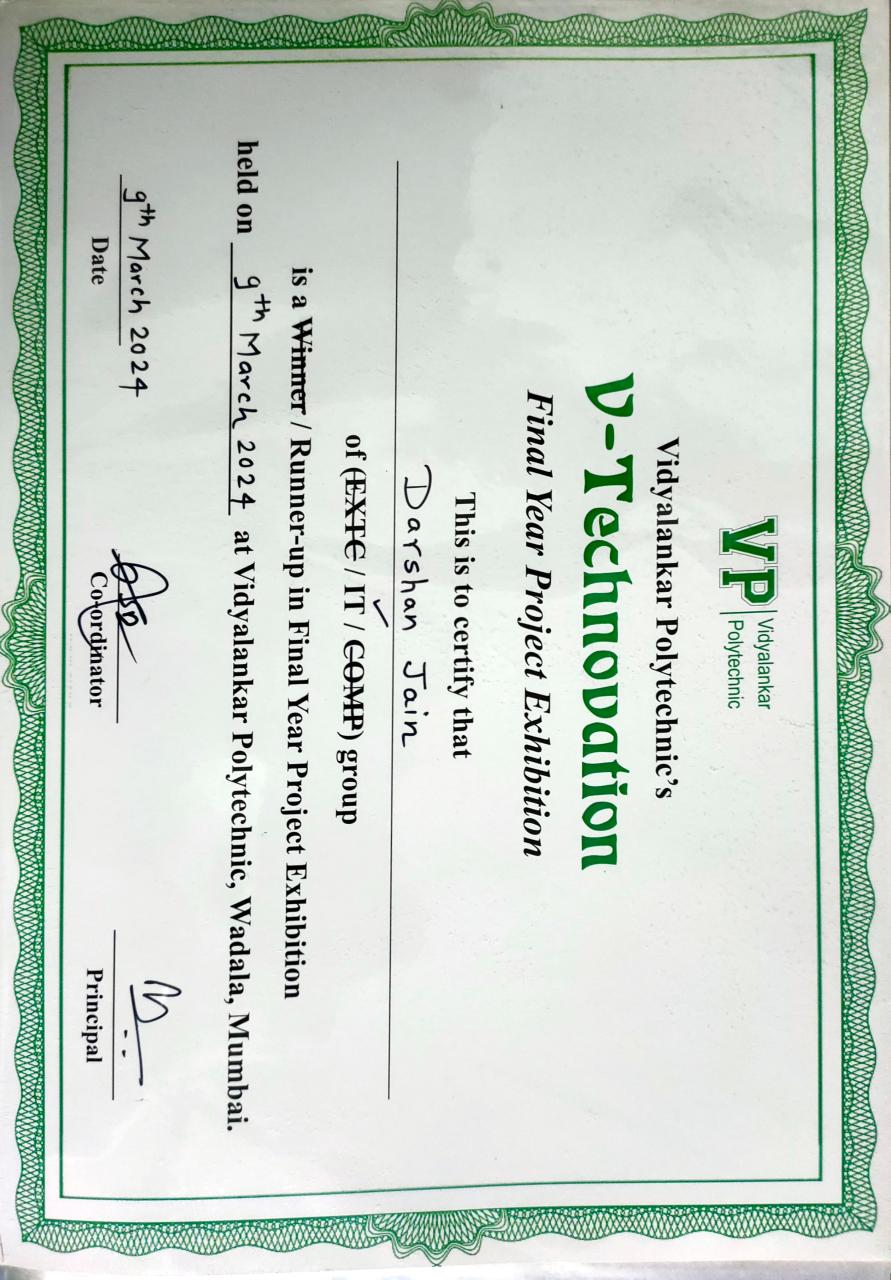 VP
Vidyalankar
Polytechnic
Vidyalankar Polytechnic's
V-Technovation
Final Year Project Exhibition
This is to certify that
Darshan Jain
of (EXTC / IT / COMP) group
is a Winner / Runner-up in Final Year Project Exhibition
held on 9th March 2024 at Vidyalankar Polytechnic, Wadala, Mumbai.
9th March 2024
Date
Co-ordinator
Principal